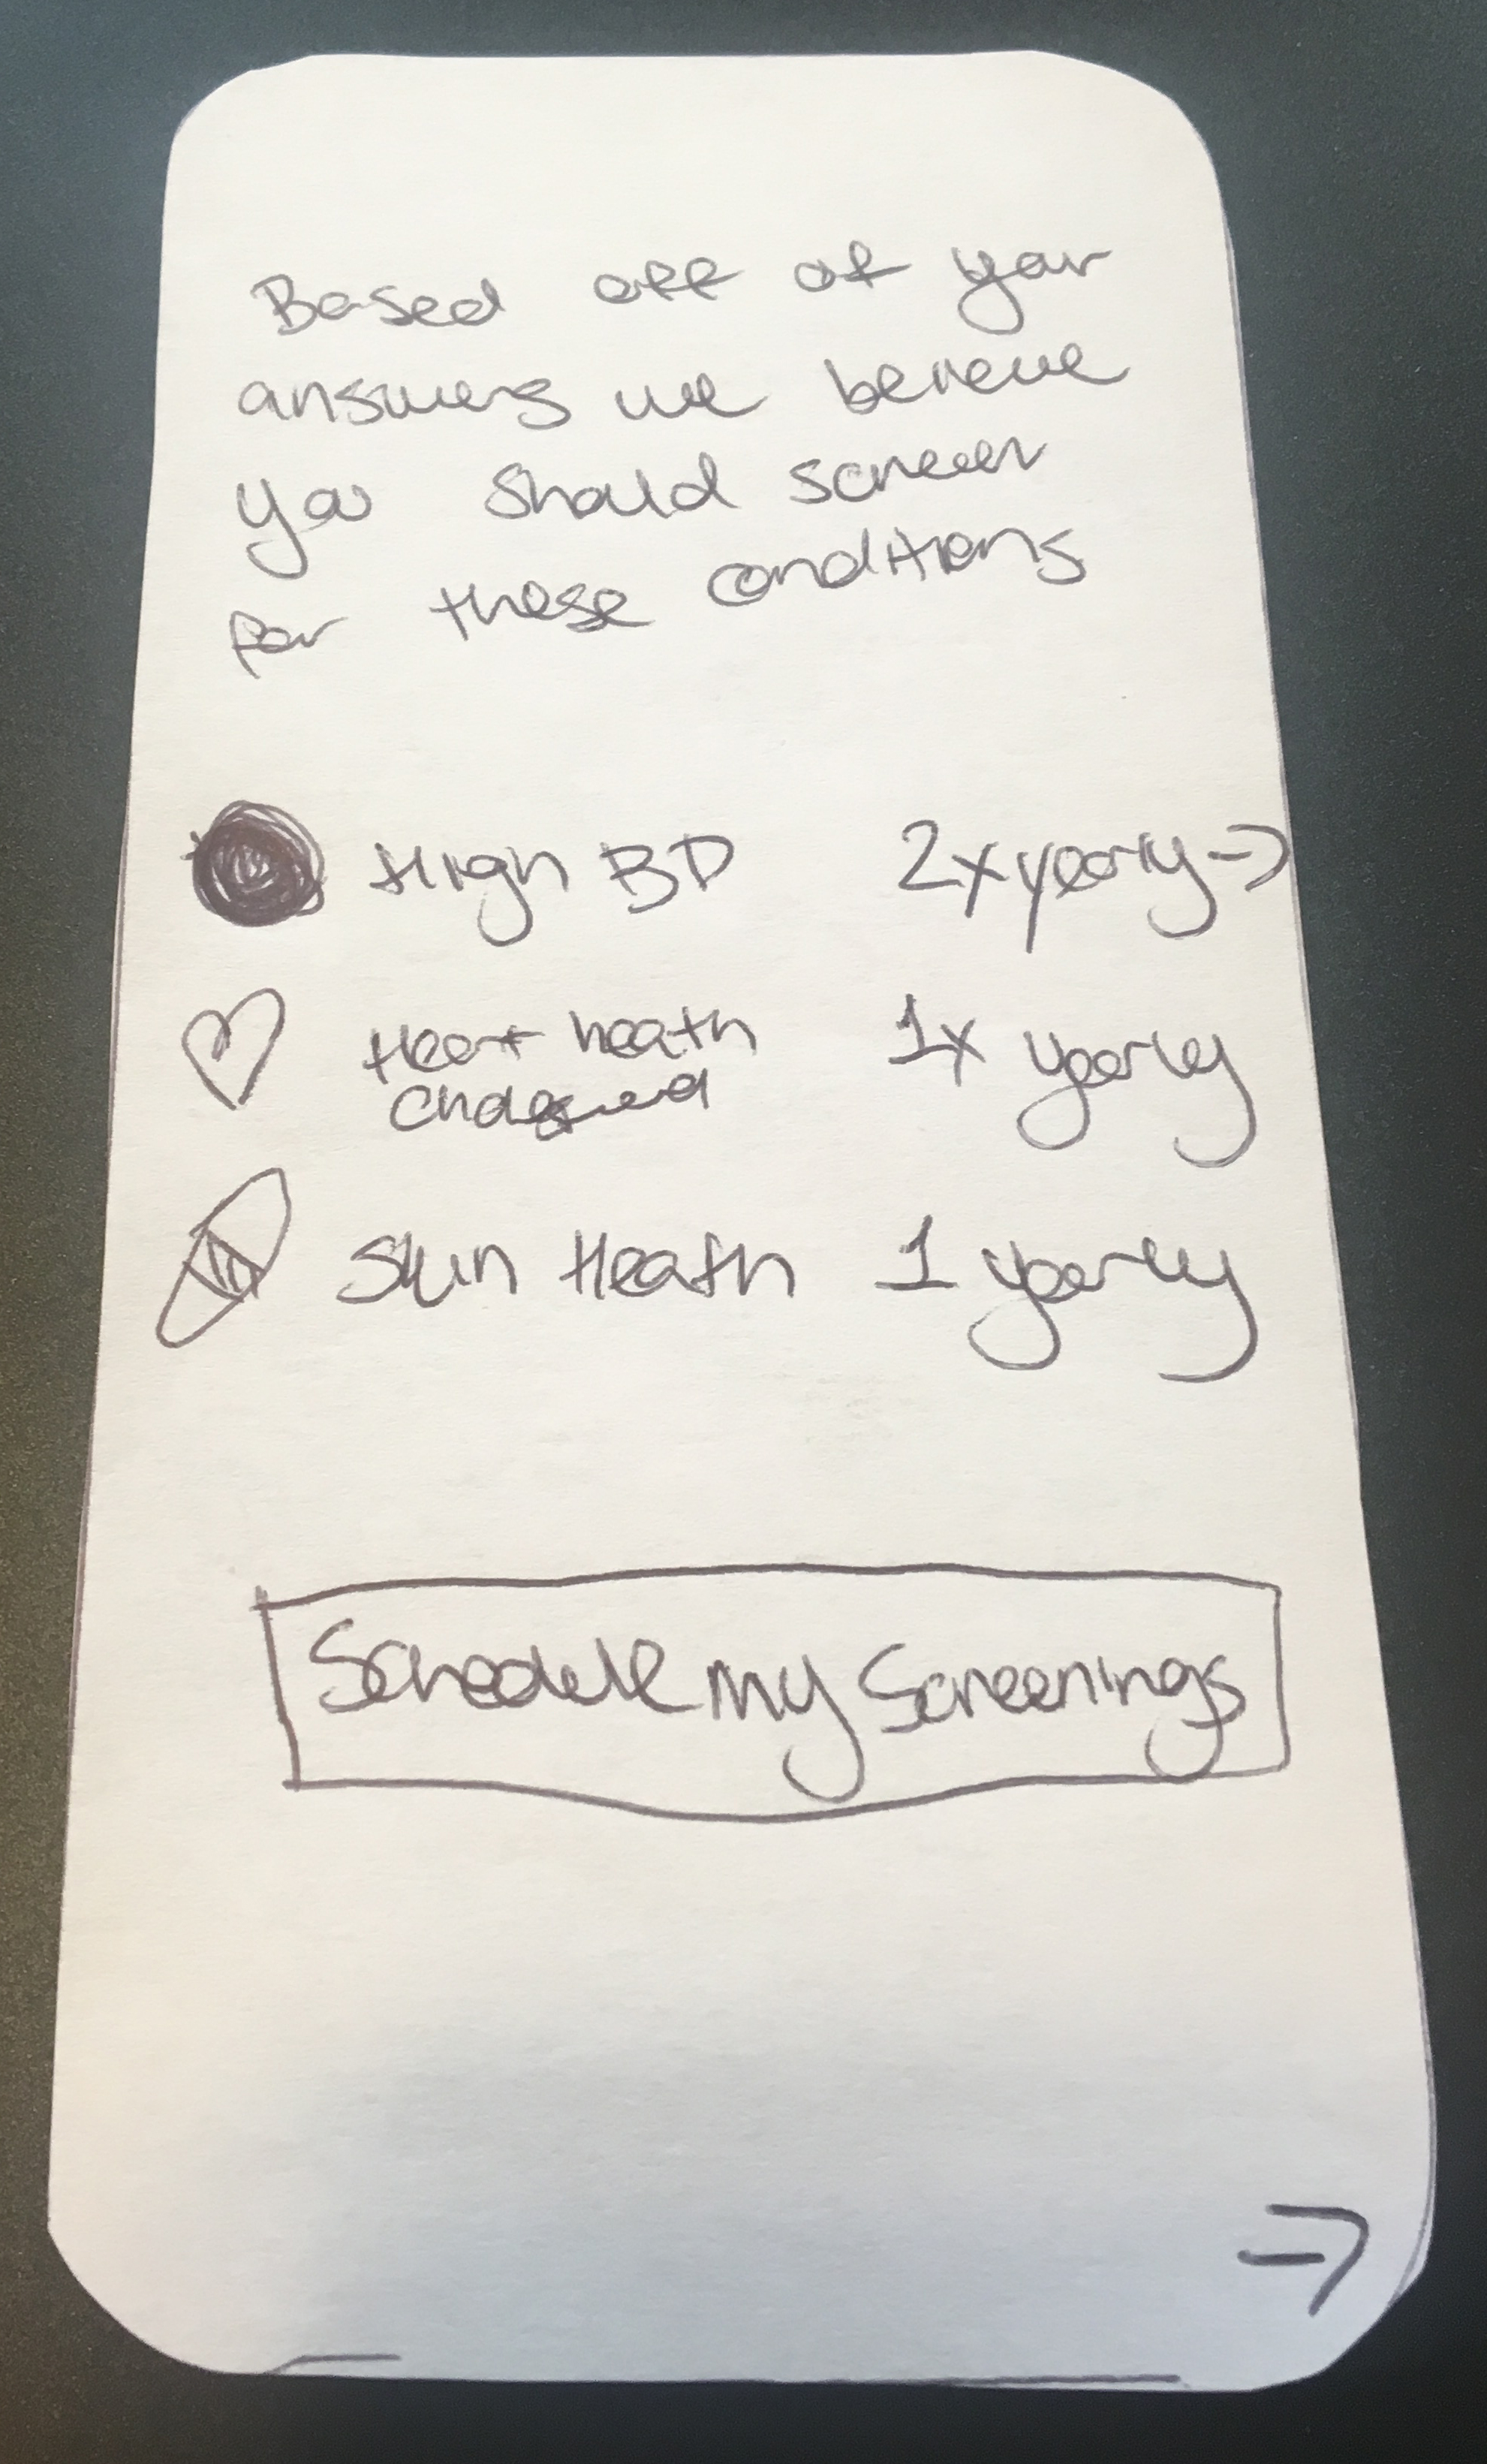 Based off of your
answers we believe
you should screen
for these conditions
High BP 2x yearly ->
Heart heath 1x yearly
Skin Heath 1 yearly
Schedule my Screenings
->